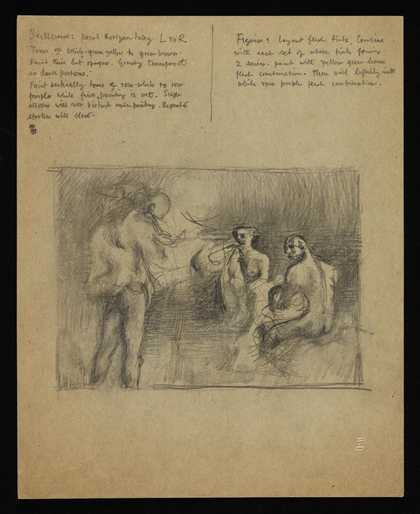 Background paint Horizontally L to R
Tones of whitish-green yellow to green brown
Paint thin but opaque. Greatly transparent
in dark portions.
Paint vertically tones of rose-white to rose
purple while first painting is wet. Super
will not disturb main painting.
will bleed.
Figures: Layout flesh tints. Combine
with each set of above tints forms
2 series. paint with yellow green brown
flesh combination. Then add lightly into
while rose purple flesh combination.